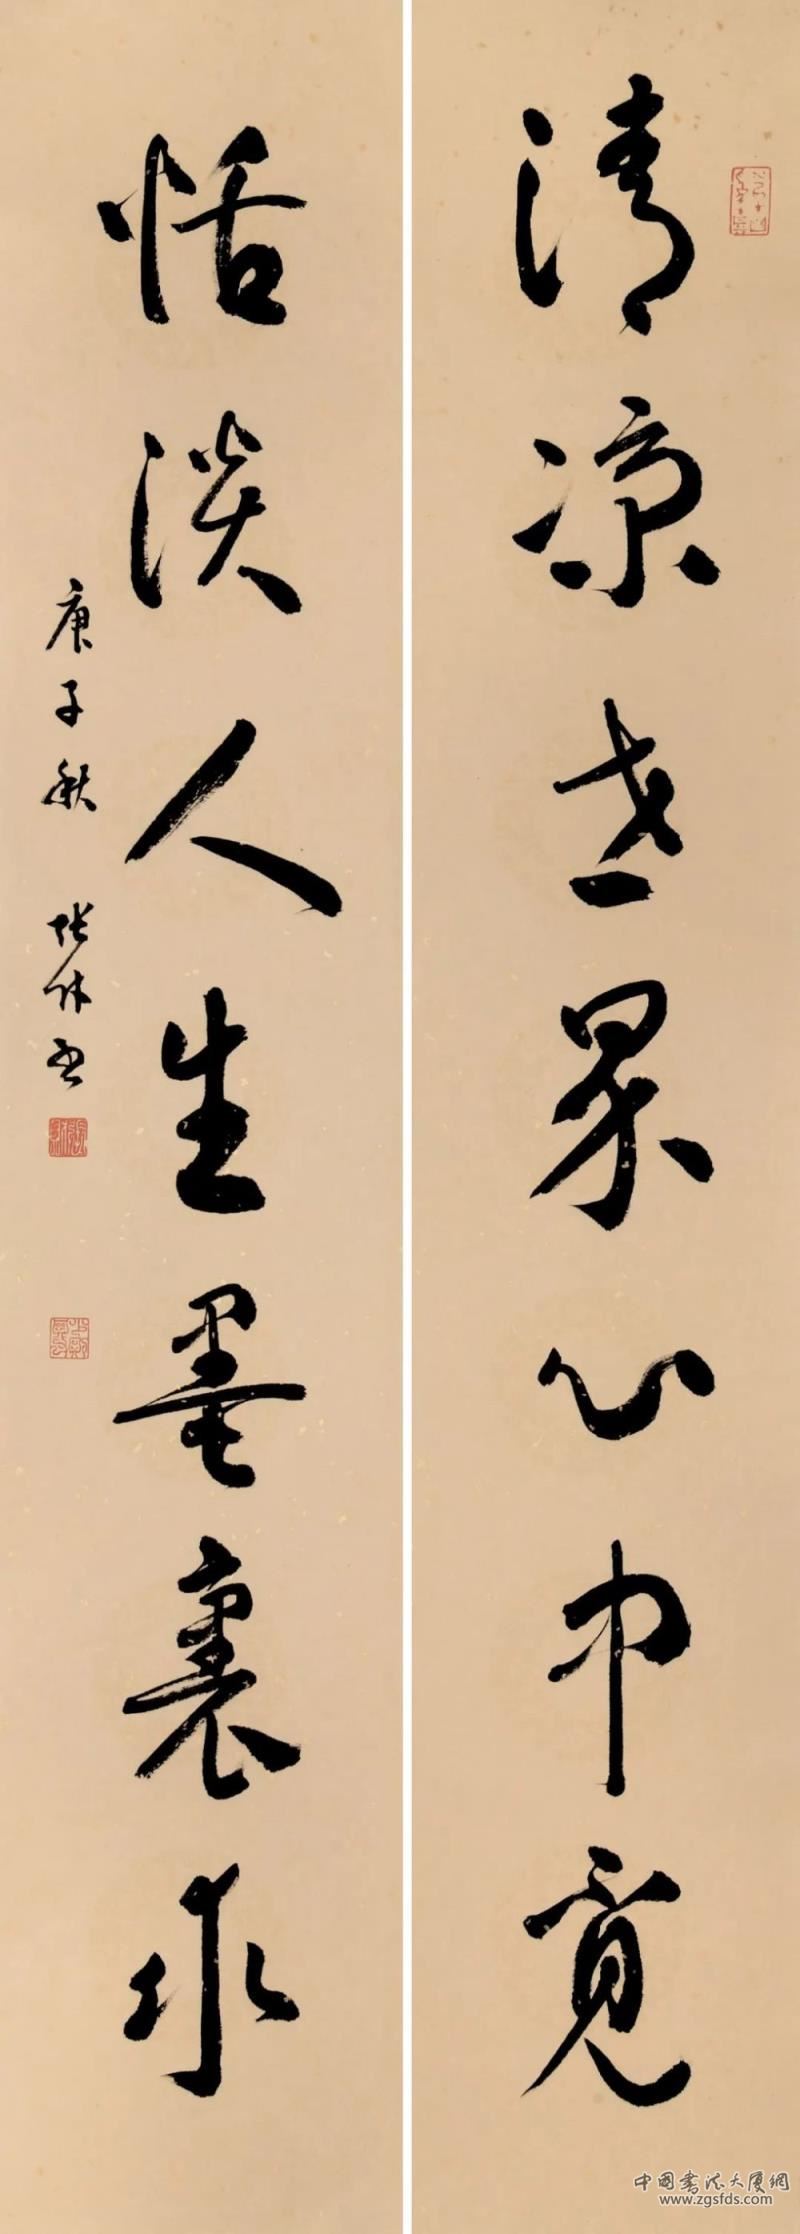 清凉世界心中觅
恬淡人生墨裏求
庚子秋 张休书
中国书法大厦网
www.zgsfds.com